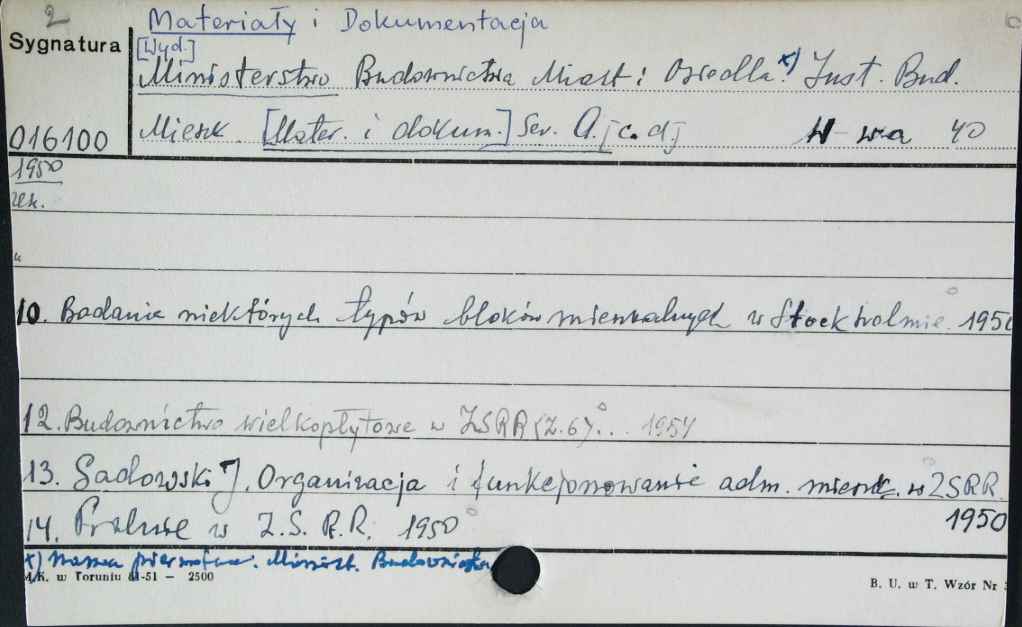 2 Materiały i Dokumentacja
Sygnatura
[Wyd.]
Ministerstwo Budownictwa Miast i Osiedla. x) Inst. Bud.
016100
Mieszk. [Mater. i dokum.] Ser. A. j c. d j W-wa 40
1950
zesz.
10. Badania niektórych typów bloków mieszkalnych w Stockholmie. 1950
12. Budownictwo wielkopłytowe w ZSRR (Z. 6). .. 1954
13. Sadowski J. Organizacja i funkcjonowanie adm. mieszk. w ZSRR.
1950
14. w Z.S.R.R. 1950
x) Nazwa pierwotna: Minist. Budownictwa
w Toruniu 81-51 – 2500
B. U. w T. Wzór Nr